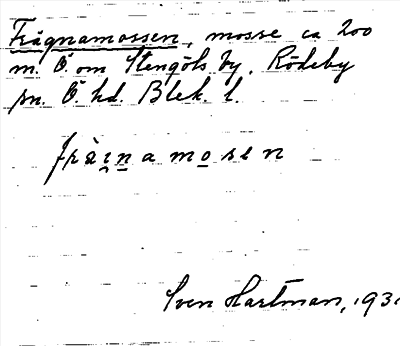 Frågnamossen, mosse ca 200
m. Ö. om Stengöls by. Rödeby
sn. Ö. hd. Blek. l.
fràɪnamosen
Sven Hartman, 193